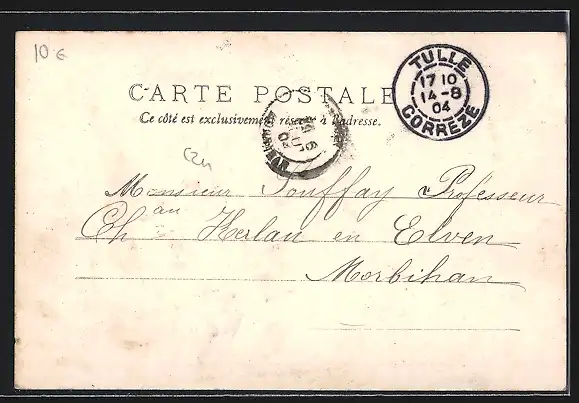 10 €
TULLE
17 10
14-8
04
CORREZE
CARTE POSTALE
Ce côté est exclusivement réservé à l'adresse.
Monsieur Souffay Professeur
Chau Kerlau en Elven
Morbihan